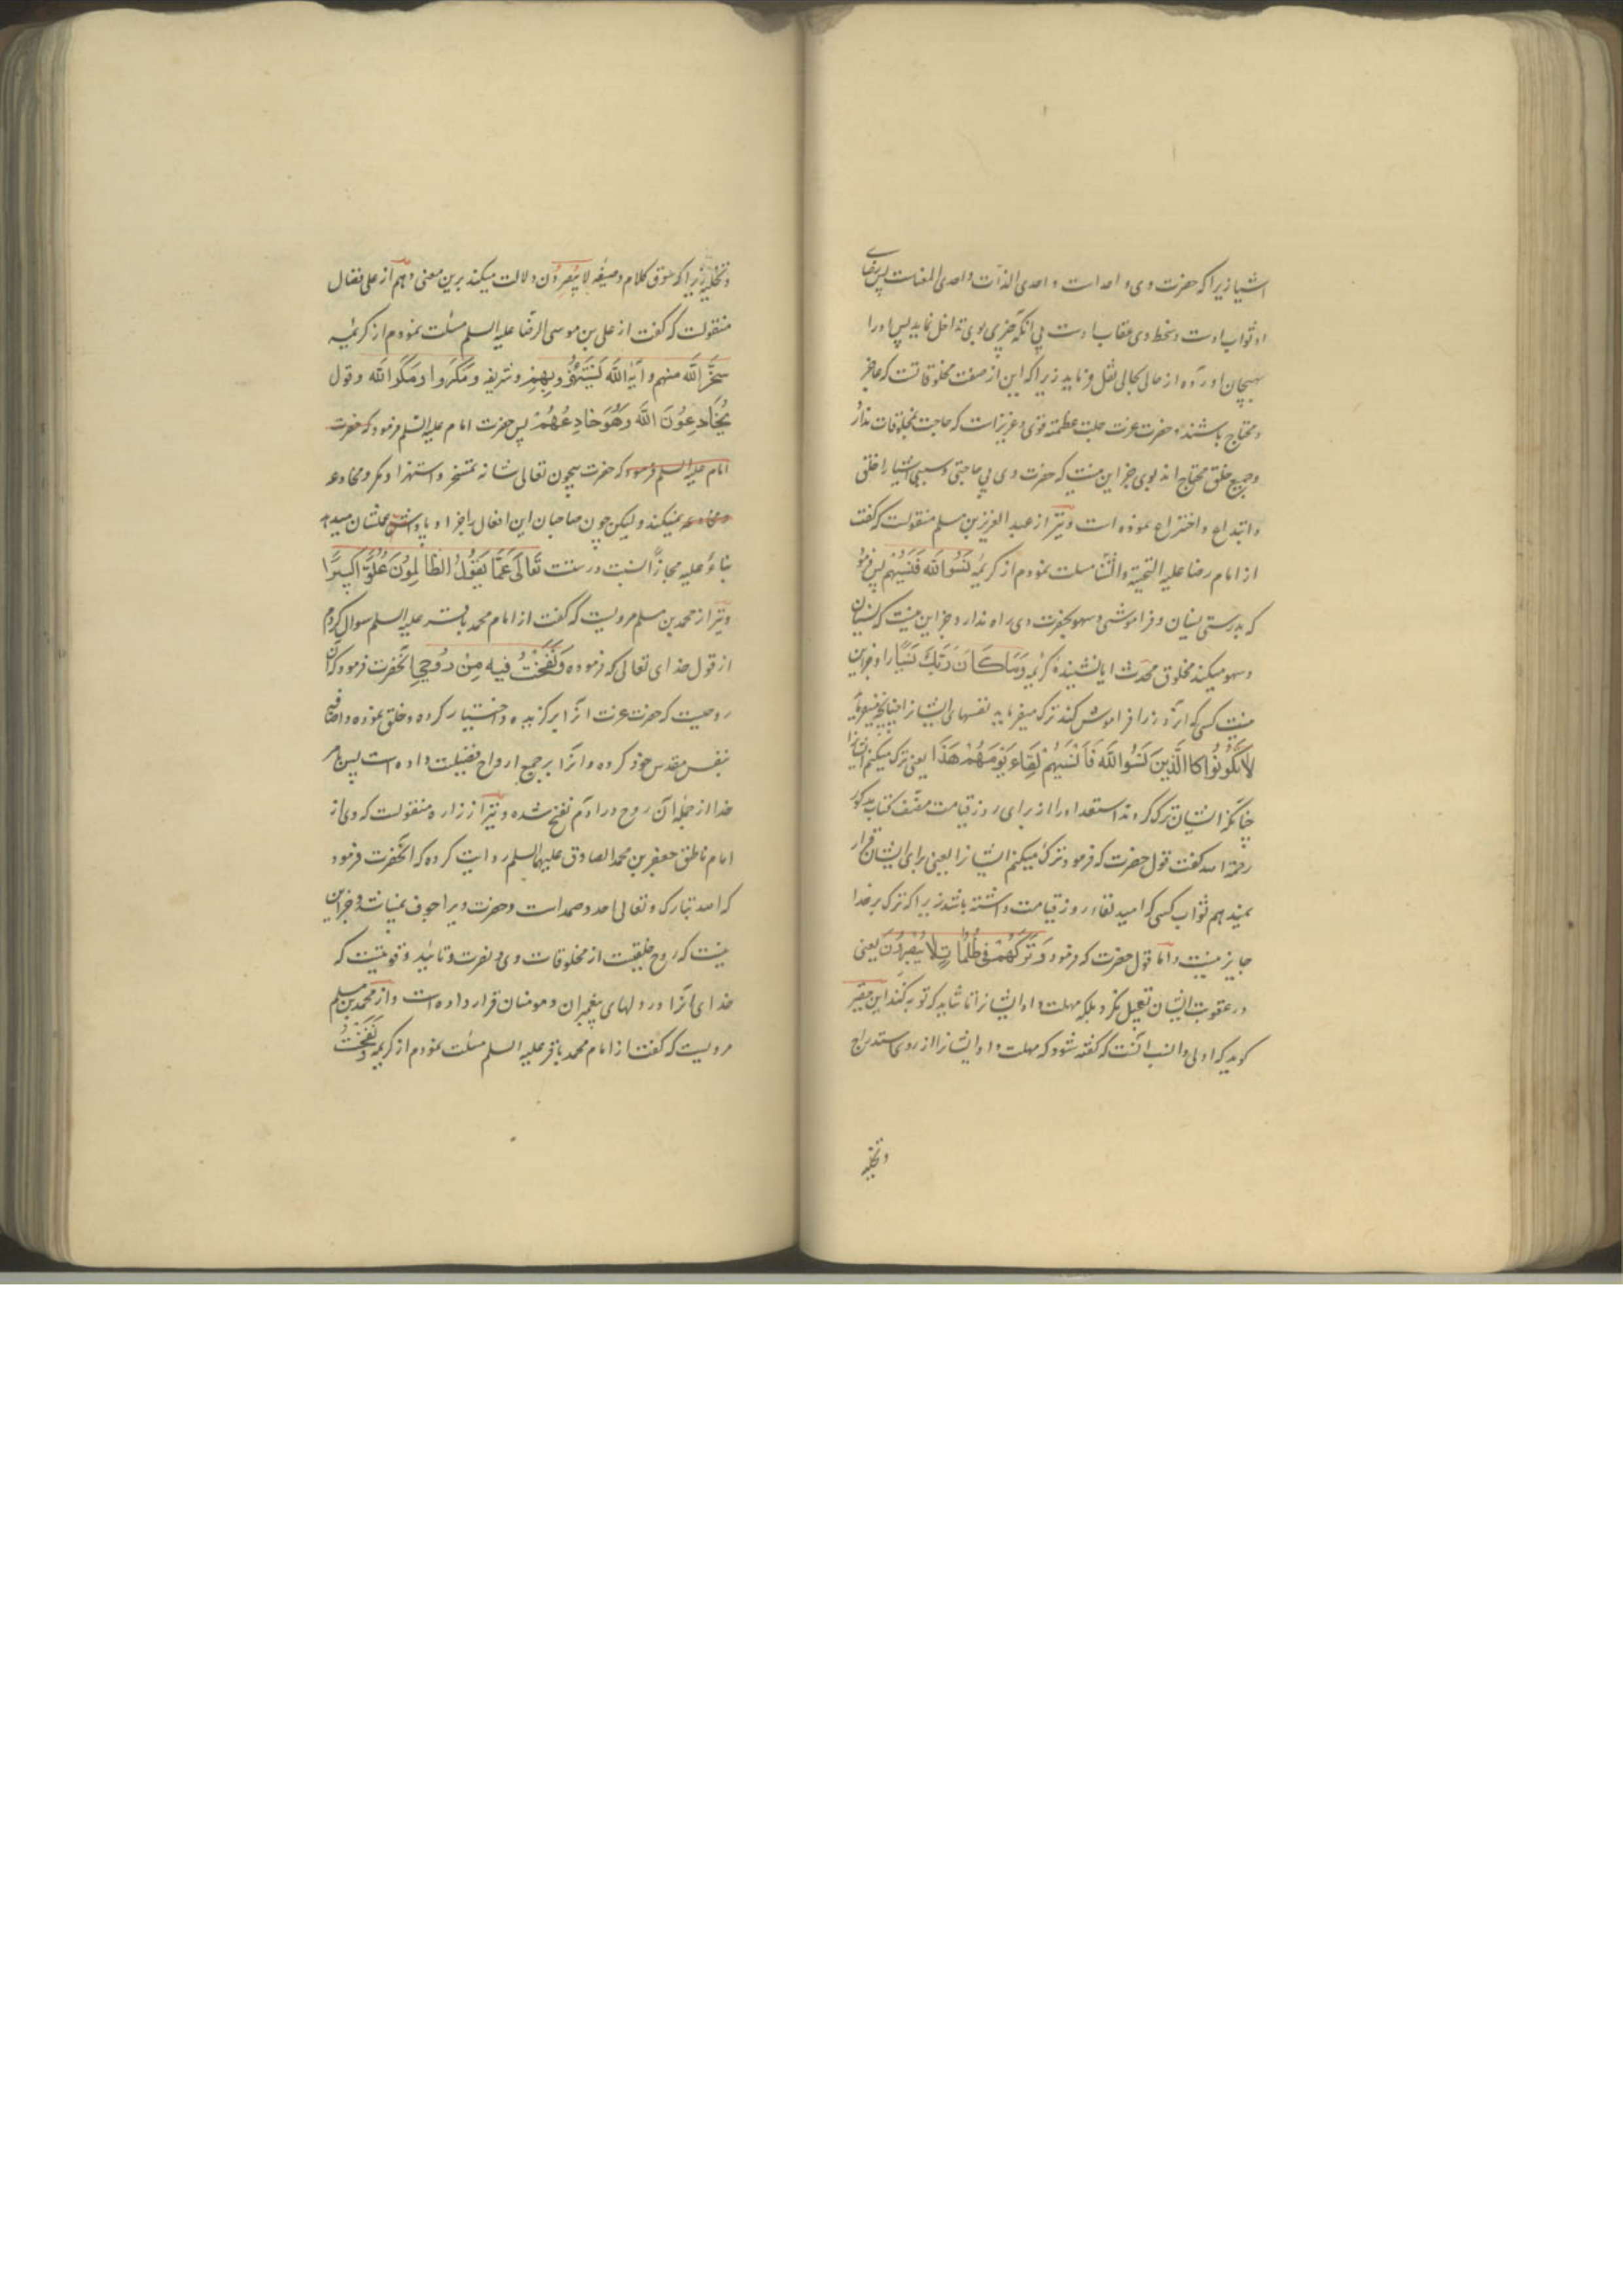 اشیا زیرا که حضرت وی واحد است واحدی الذات واحدی المعنات پس رضای
او ثواب اوست و سخط وی عقاب اوست بی آنکه چیزی بوی تداخل نماید پس او را
بهیجان آورده از حالی بحالی نقل فرماید زیرا که این از صفت مخلوقاتست که عاجز
و محتاج باشند و حضرت عزت جلت عظمته قوی و عزیز است که حاجت بمخلوقات ندارد
و جمیع خلق محتاج اند بوی جز این نیست که حضرت وی بی حاجتی و سببی اشیا را خلق
و ابتداع و اختراع نموده است و نیز از عبد العزیز بن مسلم منقولست که گفت
از امام رضا علیه التحیة والثنا مسئلت نمودم از کریمه نَسُوا اللّه فَنَسِیَهُم پس فرمود
که بدرستی نسیان و فراموشی و سهو بحضرت وی راه ندارد و جز این نیست که نسیان
و سهو میکند مخلوق محدث ایا نشنیدهٔ کریمه وَمَا كَانَ رَبُّكَ نَسِيًّا را و جز این
نیست کسی که او و روز او را فراموش کند ترک میفرماید نفسهای ایشانرا چنانچه میفرماید
لَا تَكُونُوا كَالَّذِينَ نَسُوا اللَّهَ فَأَنْسَيهُمْ لِقَاءَ يَوْمِهِمْ هَذَا یعنی ترک میکنم ایشانرا
چنانکه ایشان ترک کردند استعداد را از برای روز قیامت مصنف کتاب مذکور
رحمة الله گفت قول حضرت که فرمود ترک میکنم ایشانرا یعنی برای ایشان قرار
نمیدهم ثواب کسی که امید لقاء روز قیامت داشته باشد زیرا که ترک بر خدا
جایز نیست و اما قول حضرت که فرمود وَتَرَكَهُمْ فِي ظُلُمَاتٍ لَا يُبْصِرُونَ یعنی
در عقوبت ایشان تعجیل نکرد بلکه مهلت داد ایشانرا تا شاید که توبه کنند این حقیر
گوید که اولی و انسب آنست که گفته شود که مهلت داد ایشانرا از روی استدراج
و تخلیه
و تخلیه زیرا که سوق کلام و صیغه لا یبصرون دلالت میکند برین معنی و هم از علی فضال
منقولست که گفت از علی بن موسی الرضا علیه السلم مسئلت نمودم از کریمه
سَخِرَ اللَّه منهم و آیه اللَّه يَسْتَهْزِؤُ بِهِمْ و شریفه وَمَكَرُوا وَمَكَرَ اللَّه و قول
يُخَادِعُونَ اللَّهَ وَهُوَ خَادِعُهُمْ پس حضرت امام علیه السلم فرمود که حضرت
امام علیه السلم فرمود که حضرت بیچون تعالی شانه تمسخر و استهزا و مکر و مخادعه
و مخادعه نمیکند و لیکن چون صاحبان این افعال را جزا و پاداش عملشان میدهد
بناءً علیه مجازاً نسبت درستست تَعَالَى عَمَّا يَقُولُ الظَّالِمُونَ عُلُوًّا كَبِيرًا
و نیز از محمد بن مسلم مرویست که گفت از امام محمد باقر علیه السلم سوال کردم
از قول خدای تعالی که فرموده وَنَفَخْتُ فِيهِ مِنْ رُوحِي آنحضرت فرمود که آن
روحیست که حضرت عزت آنرا برگزیده و اختیار کرده و خلق نموده و اضافه
بنفس مقدس خود کرده و آنرا بر جمیع ارواح فضیلت داده است پس بامر
خدا از جمله آن روح در آدم نفخ شده و نیز از زراره منقولست که وی از
امام ناطق جعفر بن محمد الصادق علیهما السلم روایت کرده که آنحضرت فرمود
که الله تبارک و تعالی احد و صمد است و حضرت ویرا جوف نمیباشد و جز این
نیست که روح خلقیست از مخلوقات وی و نصرت و تایید و قوتیست که
خدای آنرا در دلهای پیغمبران و مومنان قرار داده است و از محمد بن مسلم
مرویست که گفت از امام محمد باقر علیه السلم مسئلت نمودم از کریمه وَنَفَخْتُ